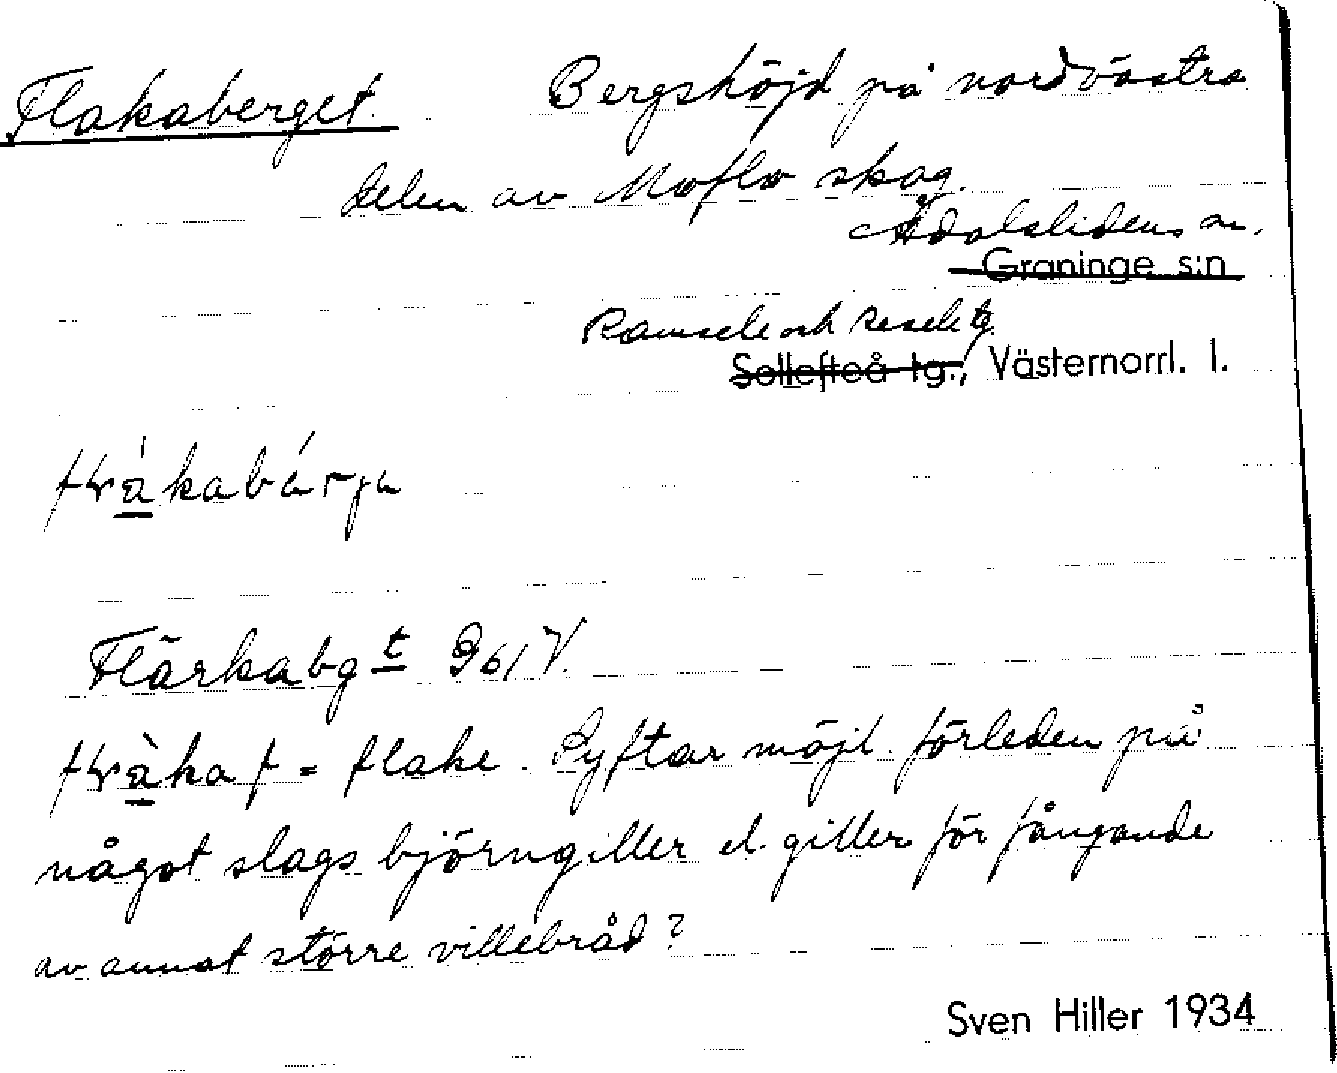 Flakaberget. Bergshöjd på nordvästra
delen av Moflo skog.
Ådalslidens sn.
Graninge s:n
Ramsele och Resele tg.
Sollefteå tg., Västernorrl. l.
Flärkabg t 961 V.
= flake. Syftar möjl. förleden på
något slags björngiller el. giller för fångande
av annat större villebråd?
Sven Hiller 1934